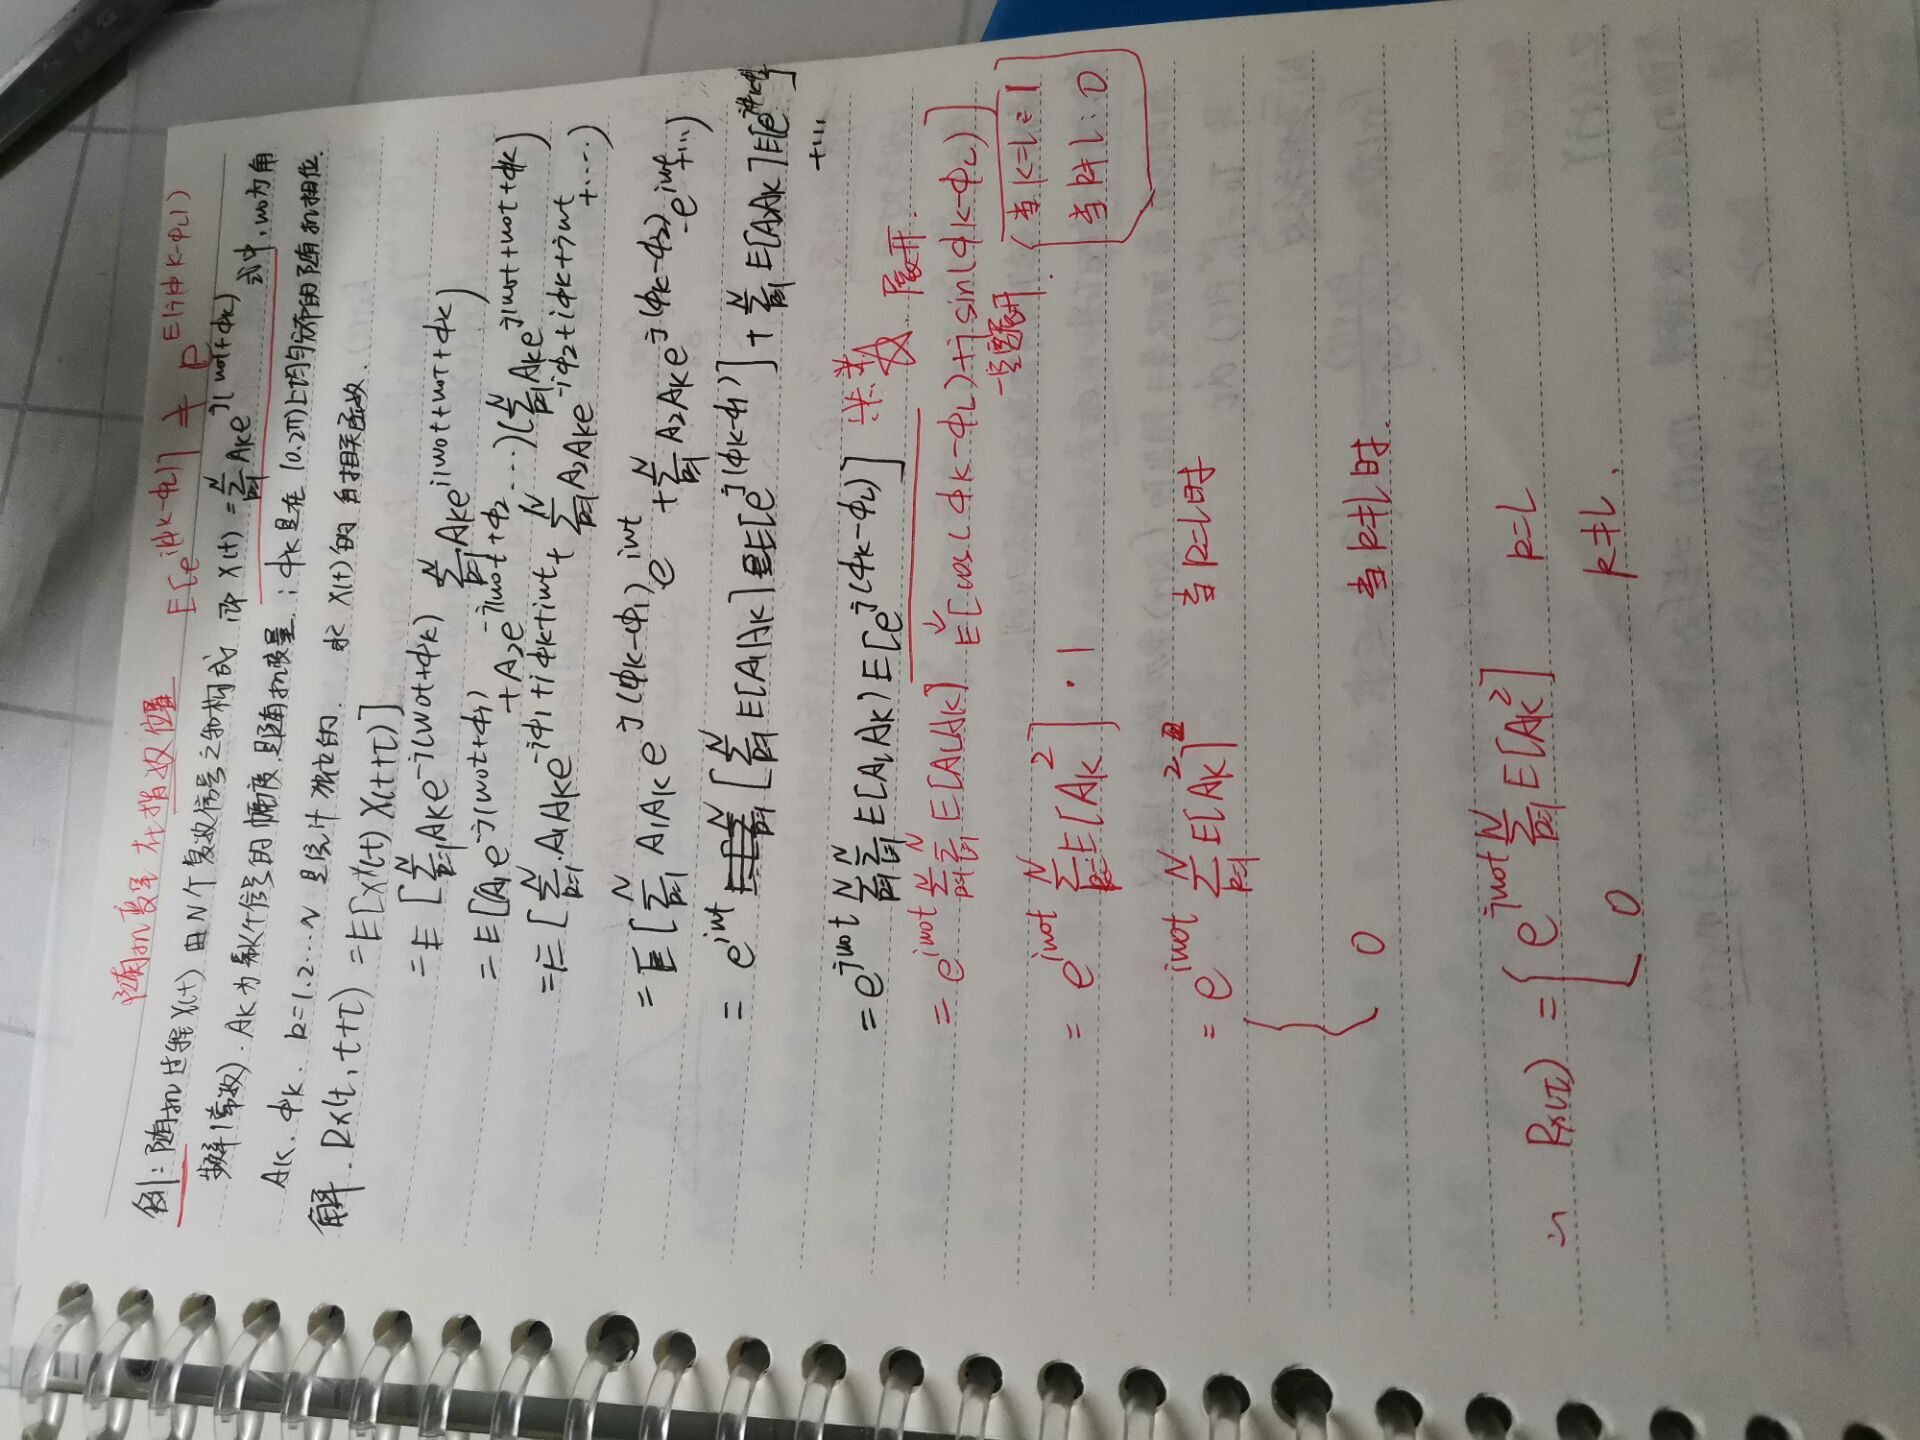 随机变量在指数位置 E[e^{j(ϕK-ϕL)}] ≠ e^{E[j(ϕK-ϕL)]}
例:随机过程X(t)由N个复数信号之和构成,即 X(t)=∑_{k=1}^{N} AKe^{j(w0t+ϕK)} 式中,w0为角
频率(常数).AK为第K个信号的幅度,是随机变量;ϕK是在(0.2π)上均匀分布的随机相位.
AK.ϕK.k=1.2…N 是统计独立的. 求X(t)的自相关函数.
解. RX(t,t+τ) =E[X*(t)X(t+τ)]
=E[∑_{k=1}^{N}AKe^{-j(w0t+ϕK)} ∑_{k=1}^{N}AKe^{j(w0t+w0τ+ϕK)}]
=E[(A1e^{-j(w0t+ϕ1)}+A2e^{-j(w0t+ϕ2}…)(∑_{k=1}^{N}AKe^{j(w0t+w0τ+ϕK)}]
=E[∑_{k=1}^{N}A1AKe^{-jϕ1+jϕK+jwτ}+∑_{k=1}^{N}A2AKe^{-jϕ2+jϕK+jwτ}+……)
=E[∑_{k=1}^{N}A1AKe^{j(ϕK-ϕ1)}e^{jwτ}+∑_{k=1}^{N}A2AKe^{j(ϕK-ϕ2)}·e^{jwτ}+…)
=e^{jwτ}[∑_{k=1}^{N}E[A1AK]E[e^{j(ϕK-ϕ1)}]+∑_{k=1}^{N}E[A2AK]E[e^{j(ϕK-ϕ2)}]
+…
=e^{jw0τ}∑_{k=1}^{N}∑_{L=1}^{N}E[ALAK)E[e^{j(ϕK-ϕL)}] ☆. 展开.
=e^{jw0τ}∑_{k=1}^{N}∑_{L=1}^{N}E[ALAK] ↓E[cos(ϕK-ϕL)+jsin(ϕK-ϕL)]
一定要展开. {当K=L:1
=e^{jw0τ}∑_{k=1}^{N}E[AK^2]·1 当k≠L:0
=e^{jw0τ}∑_{k=1}^{N}E[AK^2] 当k=L时
{
0 当k≠L时.
∴ RX(τ)={e^{jw0τ}∑_{k=1}^{N}E[AK^2] k=L
0 k≠L.